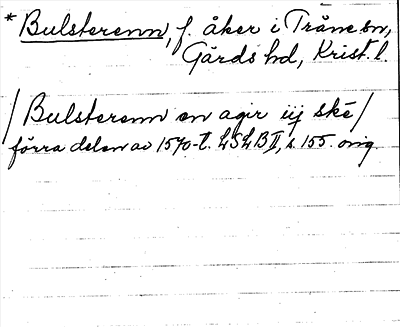 * Bulsterenn, f. åker i Träne sn,
Gärds hd, Krist. l.
/ Bulsterenn en agir iij skē /
förra delen av 1570-t. LSLB II, s. 155. orig